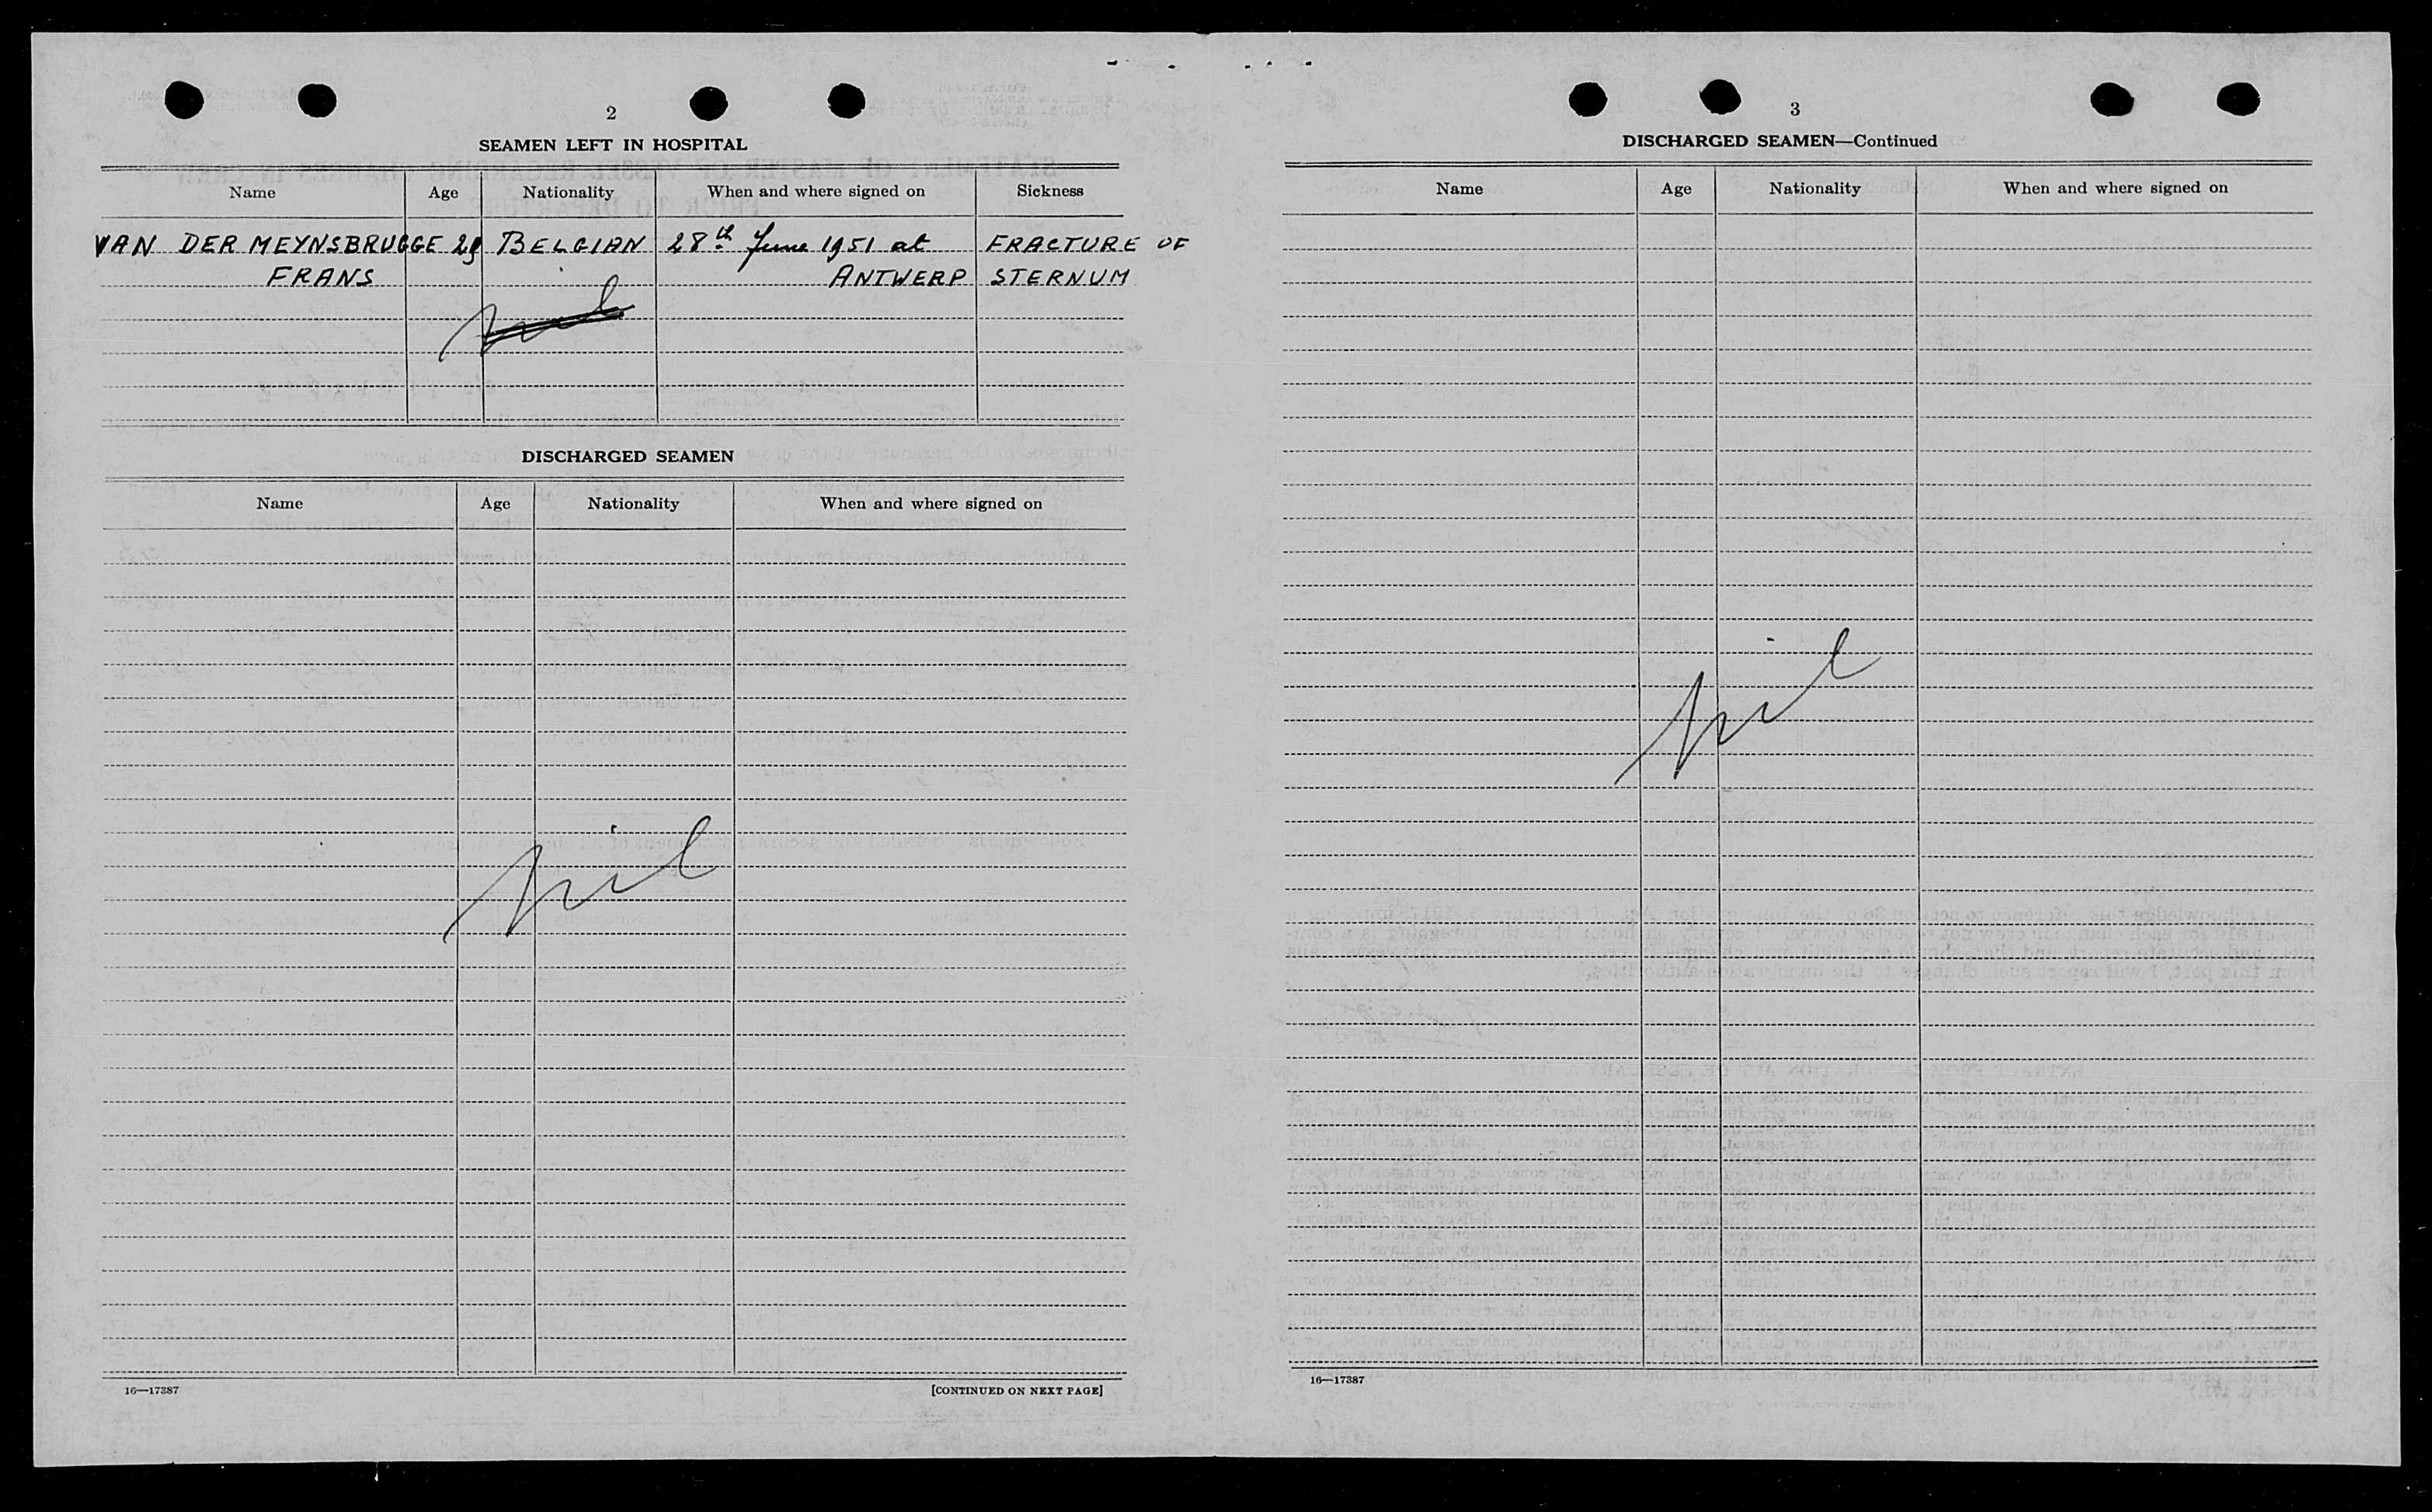 2
SEAMEN LEFT IN HOSPITAL
Name Age Nationality When and where signed on Sickness
VAN DER MEYNSBRUGGE 29 BELGIAN 28th June 1951 at FRACTURE OF
FRANS ANTWERP STERNUM
nil
DISCHARGED SEAMEN
Name Age Nationality When and where signed on
nil
16—17387 [CONTINUED ON NEXT PAGE]
3
DISCHARGED SEAMEN—Continued
Name Age Nationality When and where signed on
nil
16—17387